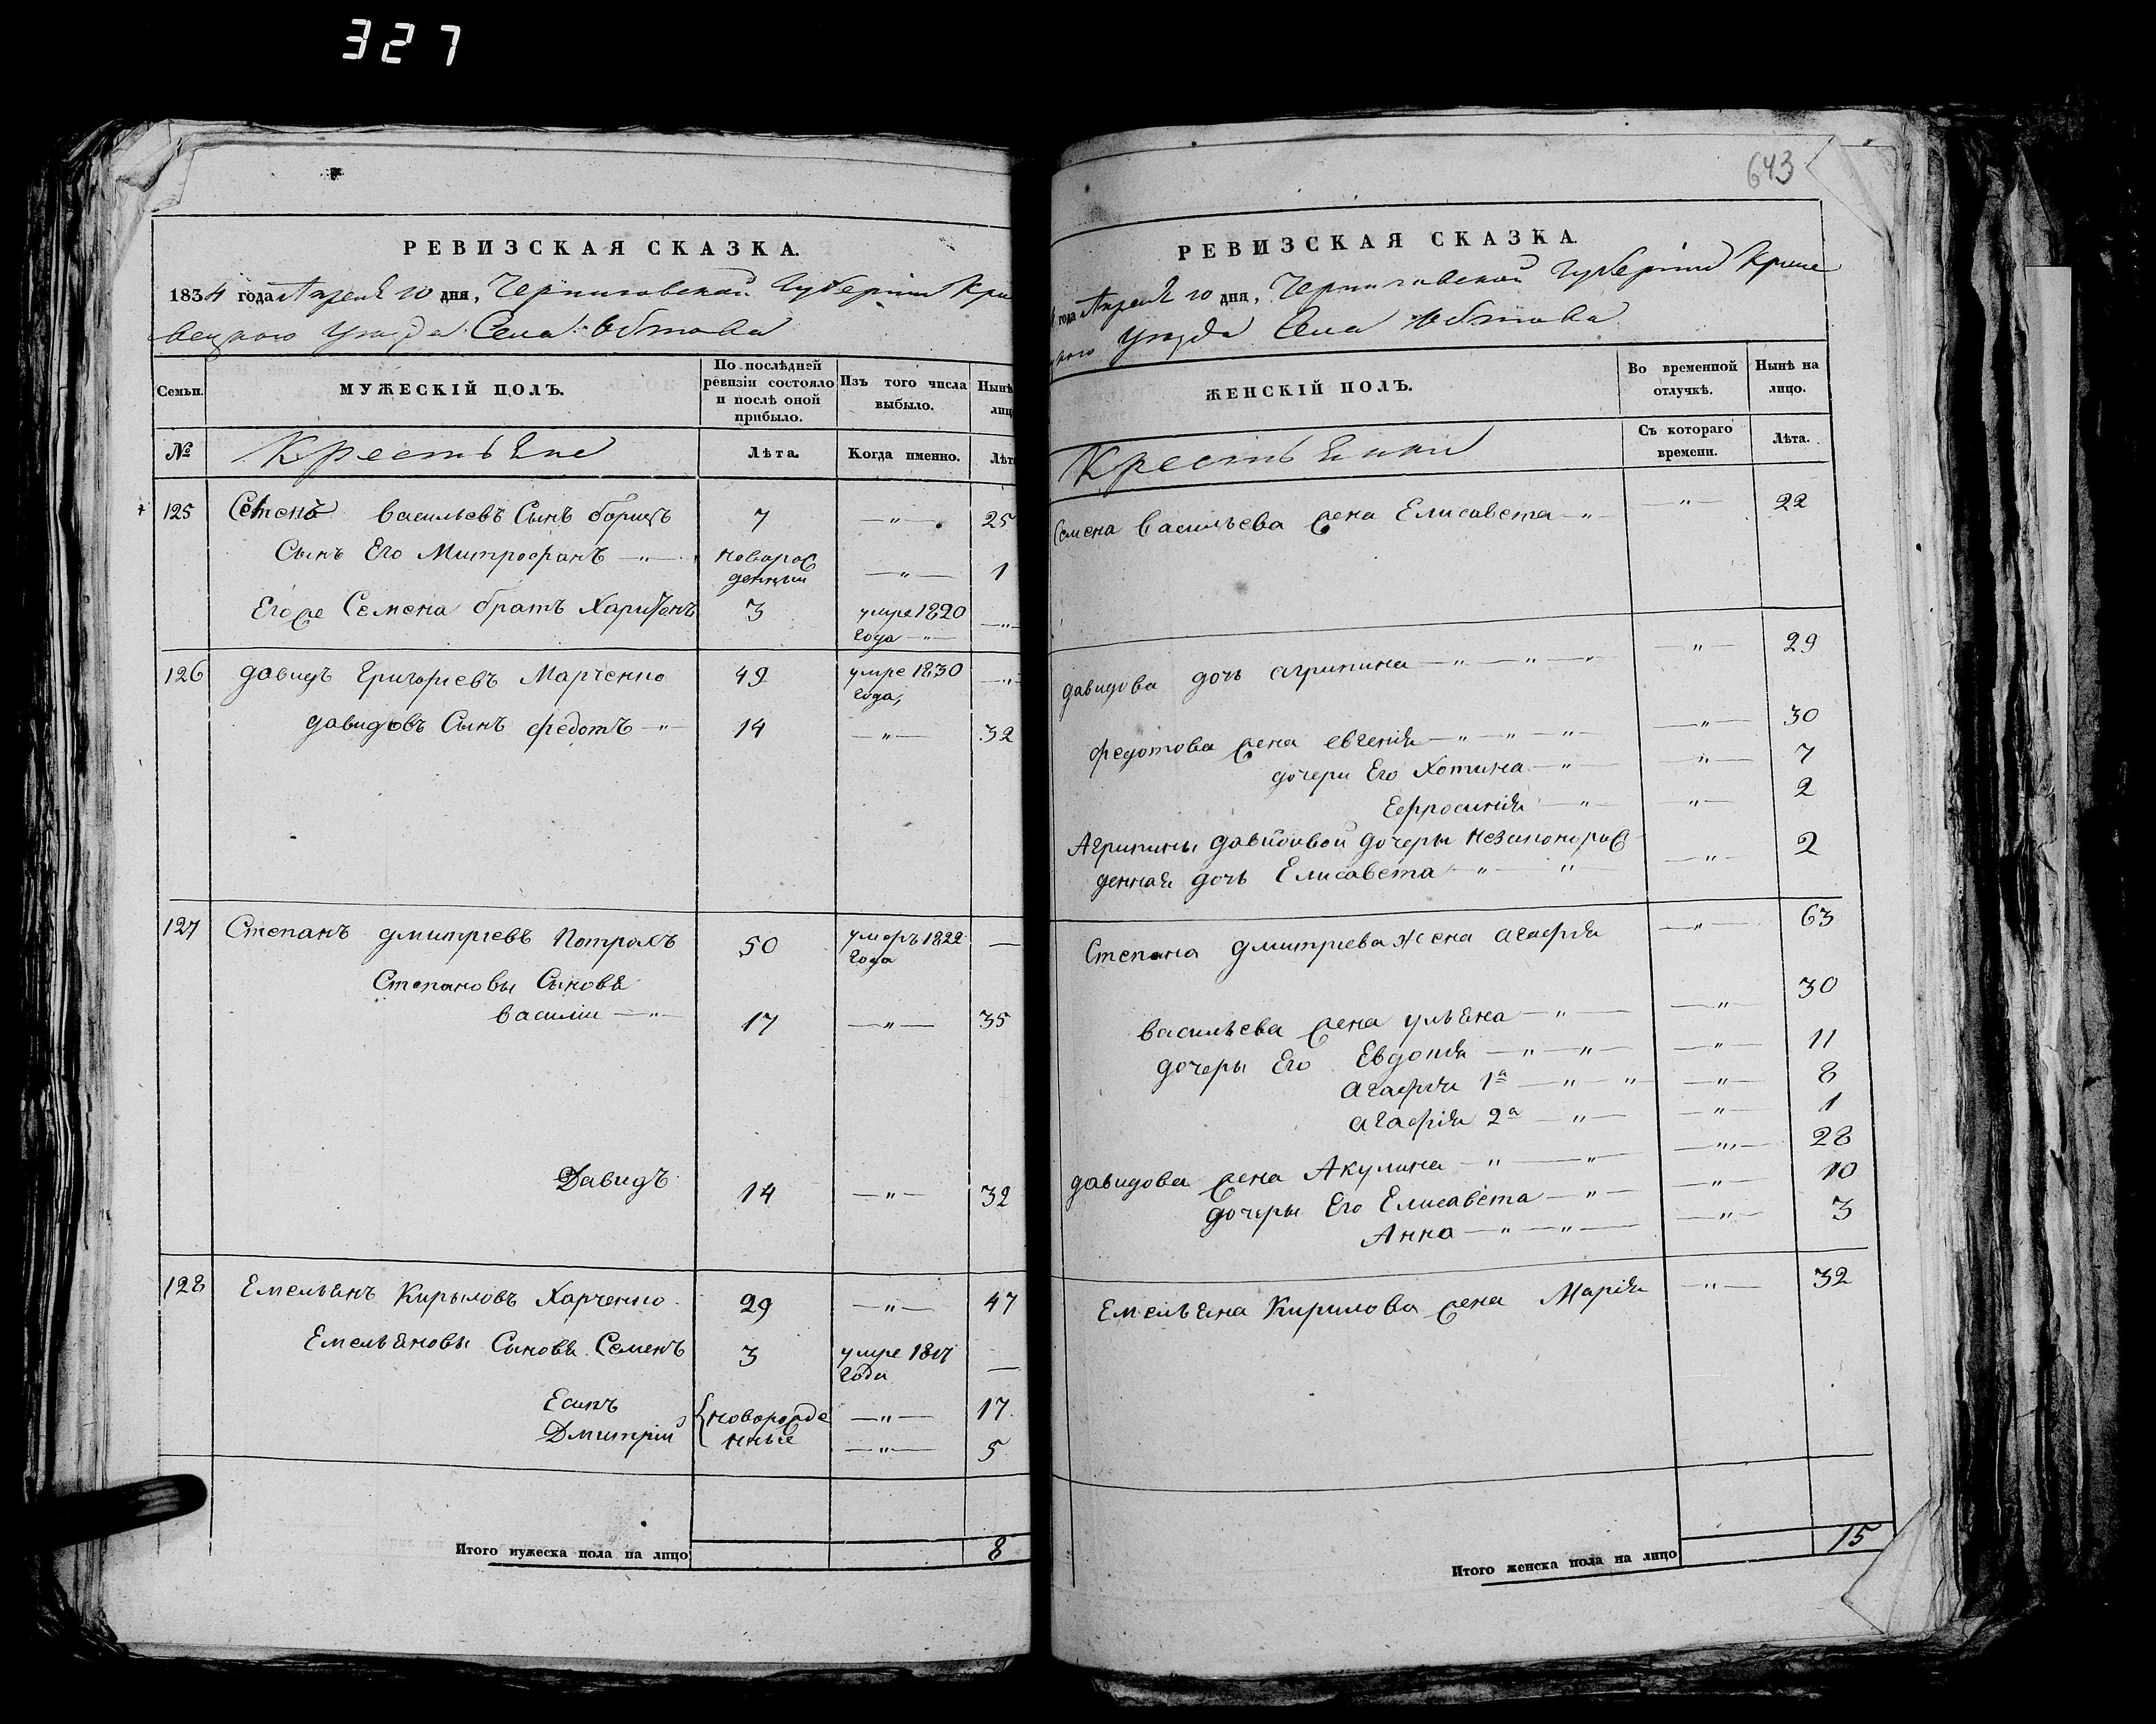 327
РЕВИЗСКАЯ СКАЗКА.
1834 года Апреля 10 дня, Черниговской Губернии Кро
вецкого Уезда Села Обтова
Семьи.
МУЖЕСКІЙ ПОЛЪ.
По последней ревизіи состояло и послѣ оной прибыло.
Изъ того числа выбыло.
Нынѣ лиц
№
Крестьяне
Лѣта.
Когда именно.
Лѣт
125 Семенъ васильевъ Сынъ борищъ 7 —"— 25
Сынъ Его Митрофанъ —"— новорож
денный —"— 1
Егоже Семена братъ Харитонъ 3 умре 1820
года —"— —"—
126 давидъ Григориевъ Марченко 49 умре 1830
года, —"—
давидовъ Сынъ федотъ —"— 14 —"— 32
127 Степанъ дмитриевъ Потрохъ 50 умеръ 1822
года —
Степановы Сыновя
василии —"— 17 —"— 35
Давидъ 14 —"— 32
128 Емельянъ Кирыловъ Харченко 29 —"— 47
Емельяновы Сыновя Семенъ 3 умре 1817
года —
Есипъ {новорожде —"— 17
Дмитрий нные —"— 5
Итого мужеска пола на лицо 8
643
РЕВИЗСКАЯ СКАЗКА.
года Апреля 10 дня, Черниговской Губернии Кроле
Уезда Села Обтова
ЖЕНСКІЙ ПОЛЪ.
Во временной отлучкѣ.
Нынѣ на лицо.
Крестьянки
Съ котораго времени.
Лѣта.
Семена васильева жена Елисавета —"— —"— 22
давидова дочь агрипина —"—"—"— —"— 29
федотова жена евгения —"—"—"— —"— 30
дочери Его Хотина —"— —"— 7
Ефросиния —"— —"— 2
Агрипины давидовой дочеры незаконорож
денная дочь Елисавета —"—"— —"— 2
Степана дмитриева жена агафия —"— 63
васильева жена ульяна —"— —"— 30
дочеры Его Евдокия —"—"— —"— 11
Агафия 1ᵃ —"—"— —"— 8
агафия 2ᵃ —"— —"— 1
давидова жена Акулина —"—"— —"— 28
дочеры Его Елисавета —"— —"— 10
Анна —"—"— —"— 3
Емельяна Кирилова жена Мария —"— 32
Итого женска пола на лицо 15